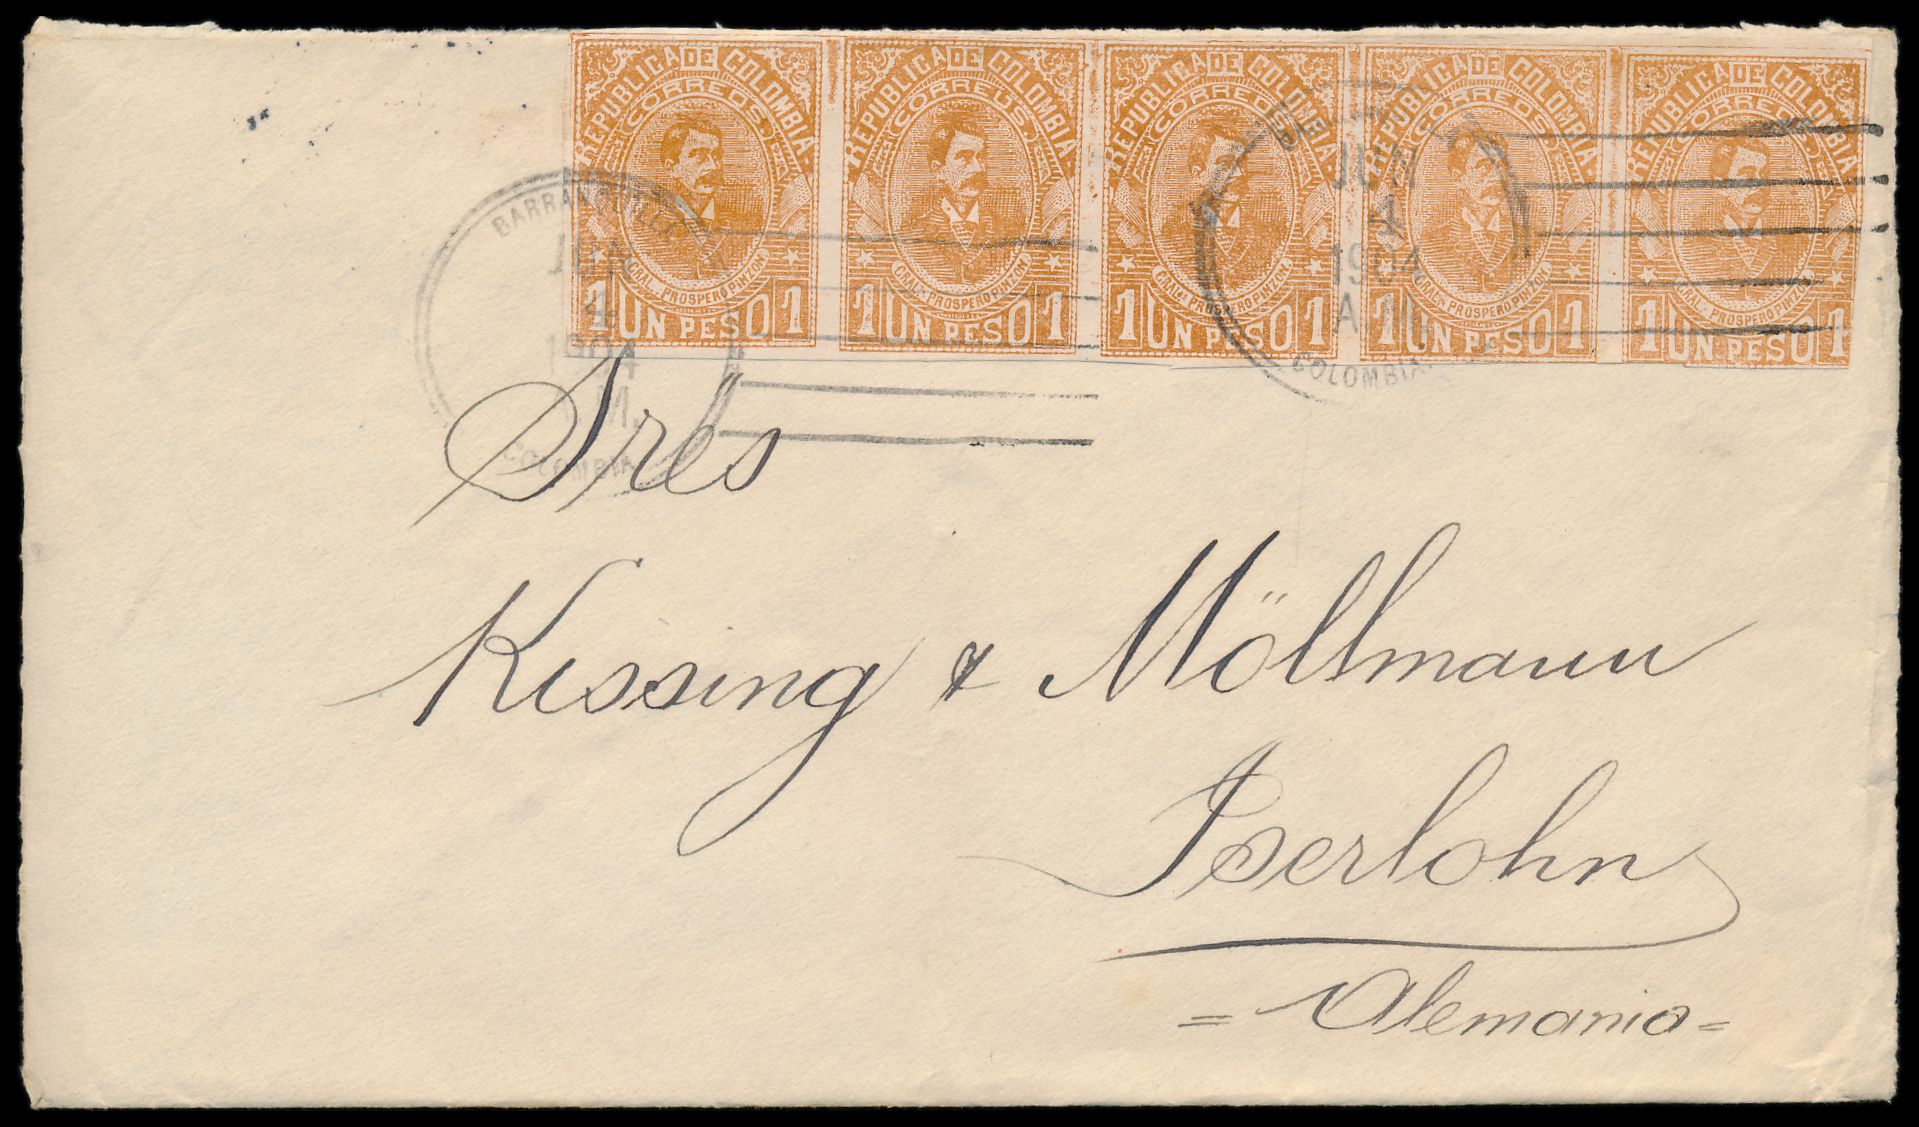 REPUBLICA DE COLOMBIA
CORREOS
GRAL. PROSPERO PINZON
1 UN PESO 1
REPUBLICA DE COLOMBIA
CORREOS
GRAL. PROSPERO PINZON
1 UN PESO 1
REPUBLICA DE COLOMBIA
CORREOS
GRAL. PROSPERO PINZON
1 UN PESO 1
REPUBLICA DE COLOMBIA
CORREOS
GRAL. PROSPERO PINZON
1 UN PESO 1
REPUBLICA DE COLOMBIA
CORREOS
GRAL. PROSPERO PINZON
1 UN PESO 1
BARRANQUILLA
JUN
4
1904
M.
COLOMBIA
JUN
4
1904
A.M.
COLOMBIA
Sres
Kissing & Möllmann
Iserlohn
= Alemania =